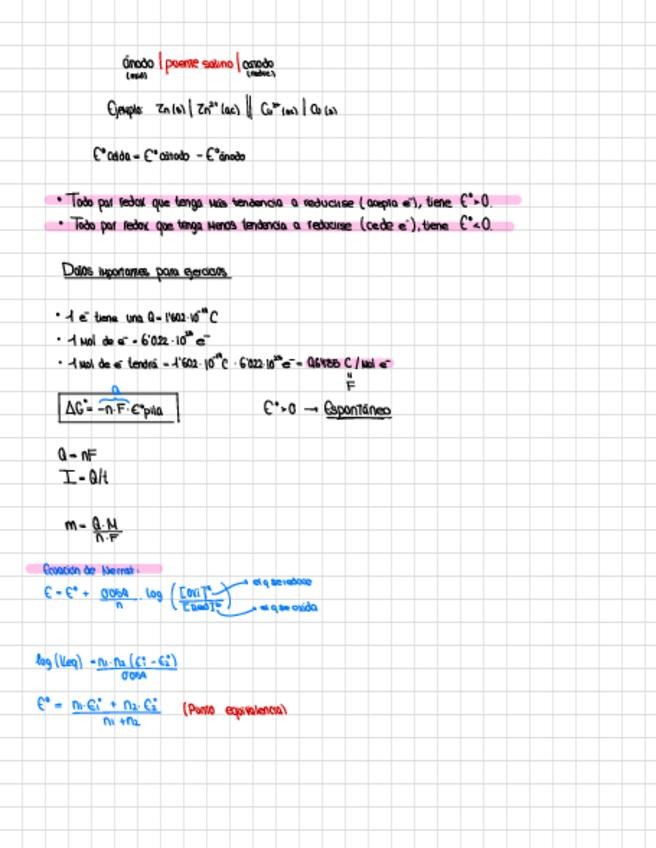 ánodo | puente salino | catodo
(oxid) (reduc.)
Ejemplo: Zn(s) | Zn²⁺(ac) || Cu²⁺(ac) | Cu(s)
E° celda = E° cátodo - E° ánodo
• Todo par redox que tenga más tendencia a reducirse (acepta e⁻), tiene E°>0.
• Todo par redox que tenga menos tendencia a reducirse (cede e⁻), tiene E°<0.
Datos importantes para ejercicios
• 1 e⁻ tiene una Q = 1'602·10⁻¹⁹ C
• 1 mol de e⁻ = 6'022·10²³ e⁻
• 1 mol de e⁻ tendrá = 1'602·10⁻¹⁹ C · 6'022·10²³ e⁻ = 96485 C/mol e⁻
"
F
Q
ΔG° = -n·F·E° pila E°>0 → Espontáneo
Q = nF
I = Q/t
m = Q·M / n·F
Ecuación de Nernst:
E = E° + 0'059/n · log ([oxi]ᵃ/[red]ᵇ) → el q se reduce
→ el q se oxida
log(Keq) = n₁·n₂(E°₁ - E°₂) / 0'059
E° = n₁·E°₁ + n₂·E°₂ / n₁+n₂ (Punto equivalencia)